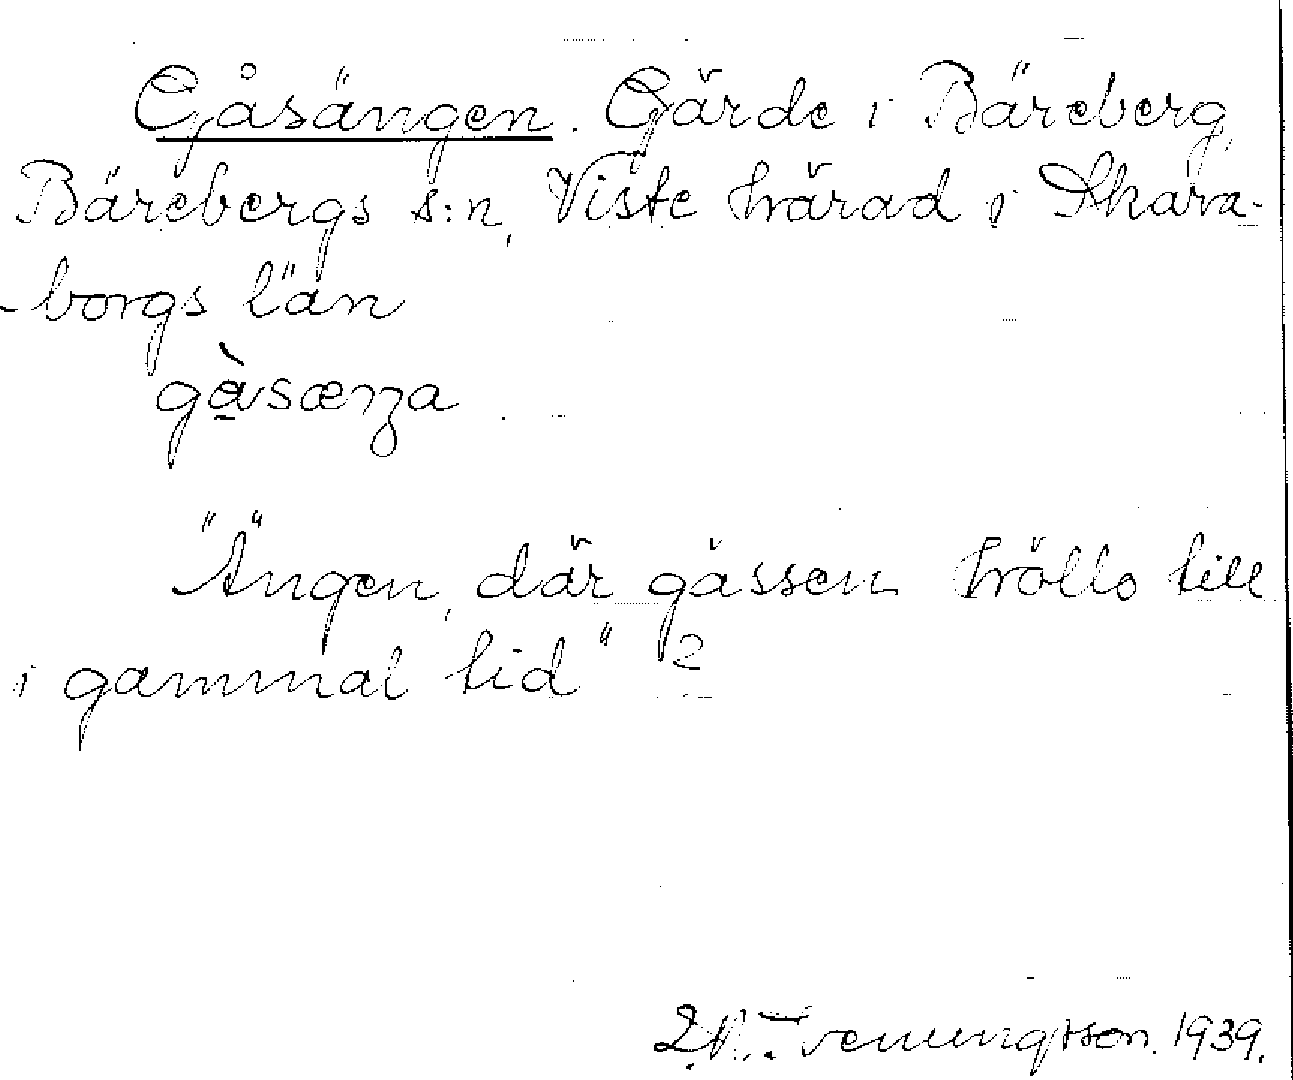 Gåsängen. Gärde i Bäreberg,
Bärebergs s:n, Viste härad i Skara-
-borgs län
gàsæŋa
"Ängen, där gässen hölls till
i gammal tid" 2
1939.